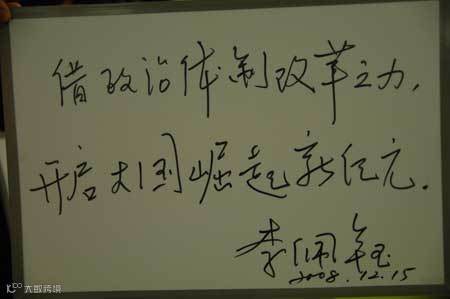 借政治体制改革之力，
开启大国崛起新纪元.
李佩钰
2008.12.15
大数跨境